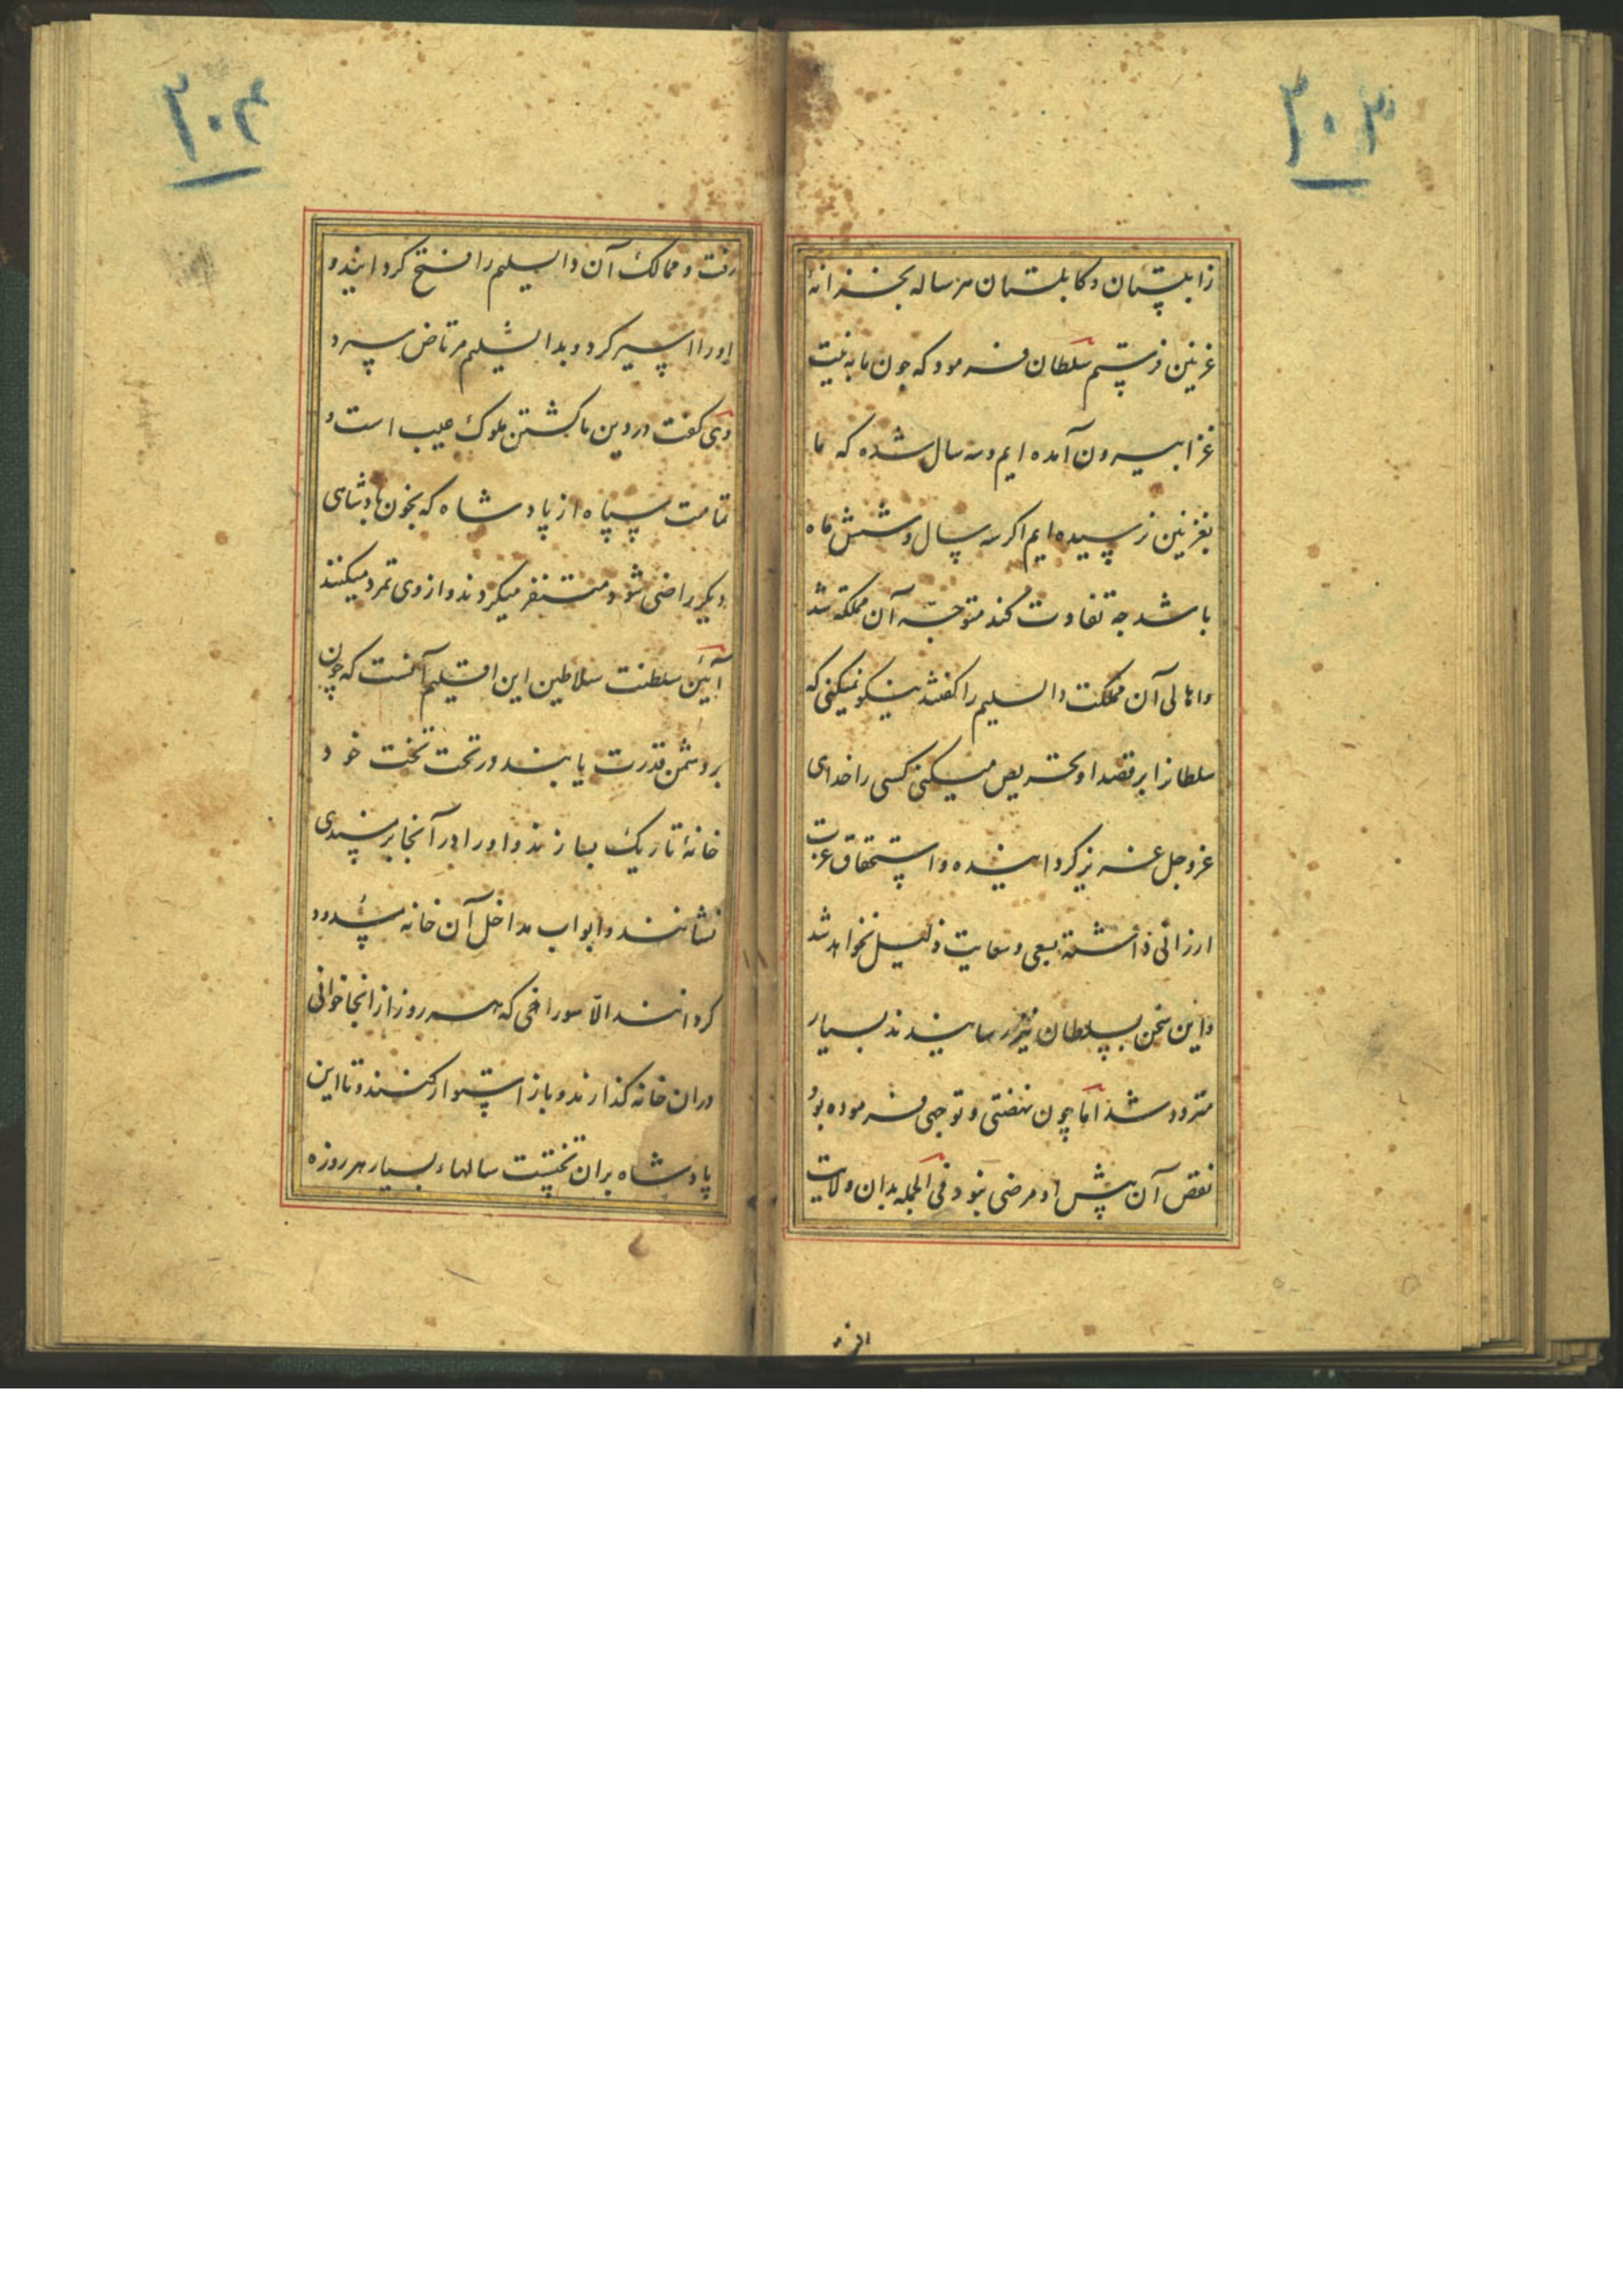 ۲۰۳
زابلستان و کابلستان هر ساله بخزانهٔ
غزنین فرستم سلطان فرمود که چون ما به نیت
غزا بیرون آمده ایم و سه سال شده که ما
بغزنین نرسیده ایم اکر سه سال و شش ماه
باشد چه تفاوت کند متوجه آن مملکة شد
و اهالی آن مملکت دابسلیم را کفتند نیکو نمیکنی که
سلطانرا بر قصد او تحریص میکنی کسی را خدای
عز و جل عزیز کردانیده و استحقاق عزت
ارزانی داشته بسعی و سعایت ذلیل نخواهد شد
و این سخن بسلطان نیز رسانیدند بسیار
متردد شد اما چون نهضتی و توجهی فرموده بود
نقض آن پیش او مرضی نبود فی الجمله بدان ولایت
۲۰۴
رفت و ممالک آن دابسلیم را فتح کردانید و
او را اسیر کرد و بدابشلیم مرتاض سپرد
وی کفت در دین ما کشتن ملوک عیب است و
تمامت سپاه از پادشاه که بخون پادشاهی
دیکر راضی شود متنفر میکردند و از وی تمرد میکنند
آئین سلطنت سلاطین این اقلیم آنست که چون
بر دشمن قدرت یابند در تحت تخت خود
خانهٔ تاریک بسازند و او را در آنجا بر مسندی
نشانند و ابواب مداخل آن خانه مسدود
کردانند الا سوراخی که هر روز از انجا خوانی
دران خانه کذارند و باز استوار کنند و تا این
پادشاه بران تختست سالهاء بسیار هر روزه